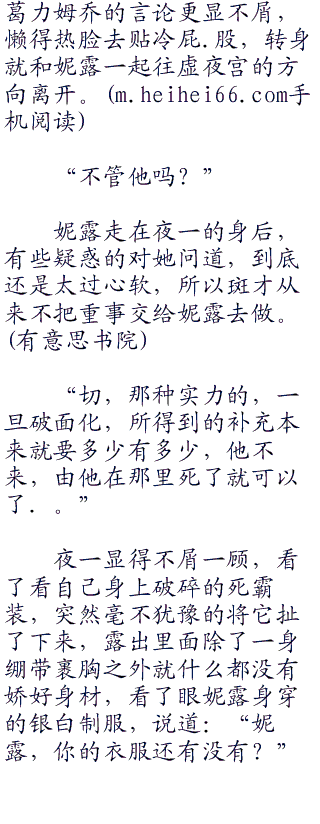 葛力姆乔的言论更显不屑，
懒得热脸去贴冷屁.股，转身
就和妮露一起往虚夜宫的方
向离开。(m.heihei66.com手
机阅读)
“不管他吗？”
妮露走在夜一的身后，
有些疑惑的对她问道，到底
还是太过心软，所以斑才从
来不把重事交给妮露去做。
(有意思书院)
“切，那种实力的，一
旦破面化，所得到的补充本
来就要多少有多少，他不
来，由他在那里死了就可以
了．。”
夜一显得不屑一顾，看
了看自己身上破碎的死霸
装，突然毫不犹豫的将它扯
了下来，露出里面除了一身
绷带裹胸之外就什么都没有
娇好身材，看了眼妮露身穿
的银白制服，说道：“妮
露，你的衣服还有没有？”